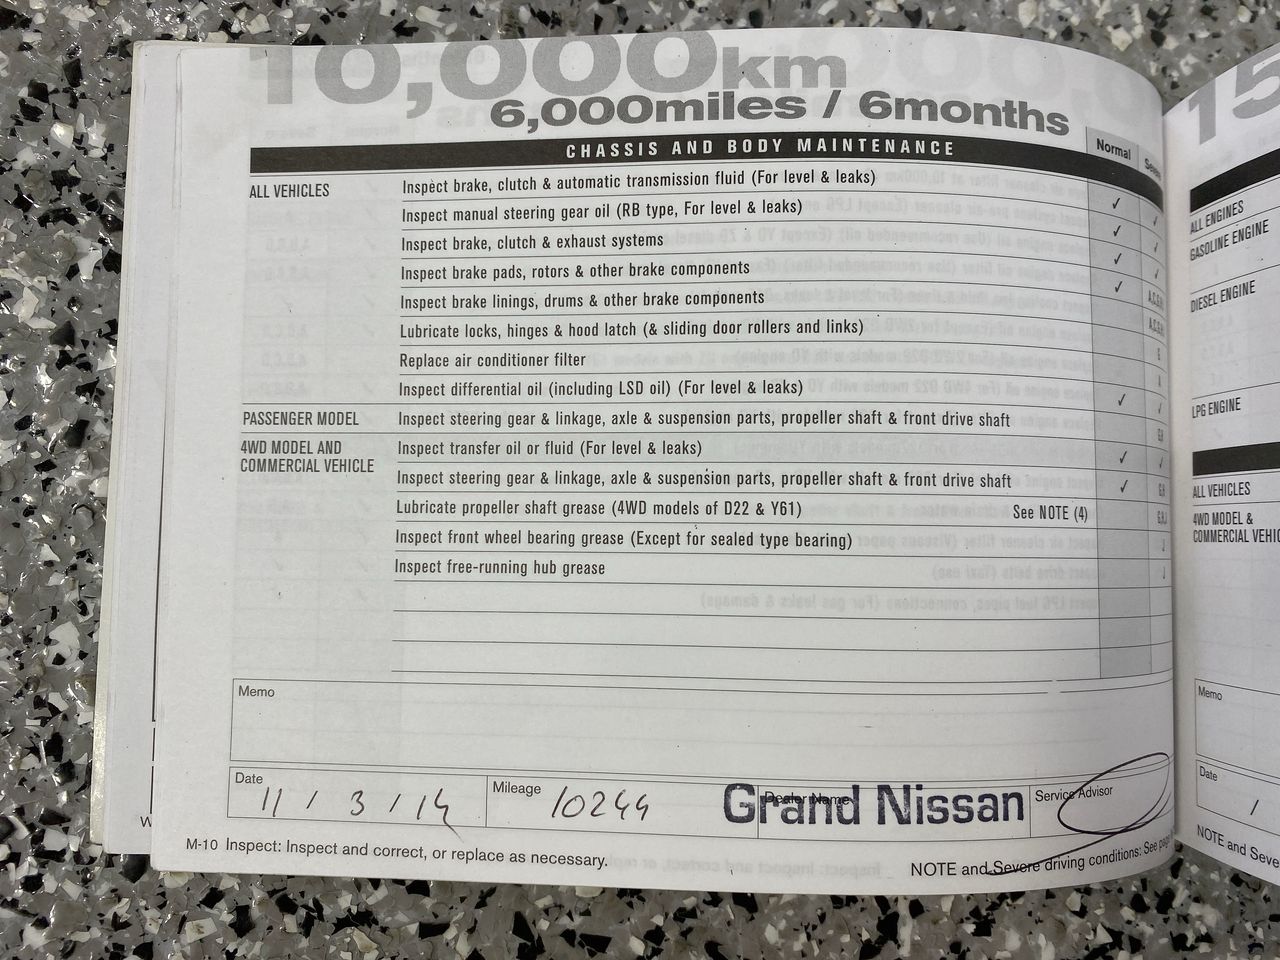 10,000km
6,000miles / 6months
CHASSIS AND BODY MAINTENANCE
Normal
ALL VEHICLES
Inspect brake, clutch & automatic transmission fluid (For level & leaks) ✓ ✓
Inspect manual steering gear oil (RB type, For level & leaks) ✓ ✓
Inspect brake, clutch & exhaust systems ✓ ✓
Inspect brake pads, rotors & other brake components ✓
Inspect brake linings, drums & other brake components
Lubricate locks, hinges & hood latch (& sliding door rollers and links)
Replace air conditioner filter
Inspect differential oil (including LSD oil) (For level & leaks) ✓ ✓
PASSENGER MODEL
Inspect steering gear & linkage, axle & suspension parts, propeller shaft & front drive shaft
4WD MODEL AND
COMMERCIAL VEHICLE
Inspect transfer oil or fluid (For level & leaks) ✓ ✓
Inspect steering gear & linkage, axle & suspension parts, propeller shaft & front drive shaft ✓
Lubricate propeller shaft grease (4WD models of D22 & Y61) See NOTE (4)
Inspect front wheel bearing grease (Except for sealed type bearing)
Inspect free-running hub grease
Memo
Date 11 / 3 / 14
Mileage 10244
Dealer Name
Grand Nissan
Service Advisor
M-10 Inspect: Inspect and correct, or replace as necessary.
NOTE and Severe driving conditions: See
15
ALL ENGINES
GASOLINE ENGINE
DIESEL ENGINE
LPG ENGINE
ALL VEHICLES
4WD MODEL &
COMMERCIAL
Memo
Date
/
NOTE and